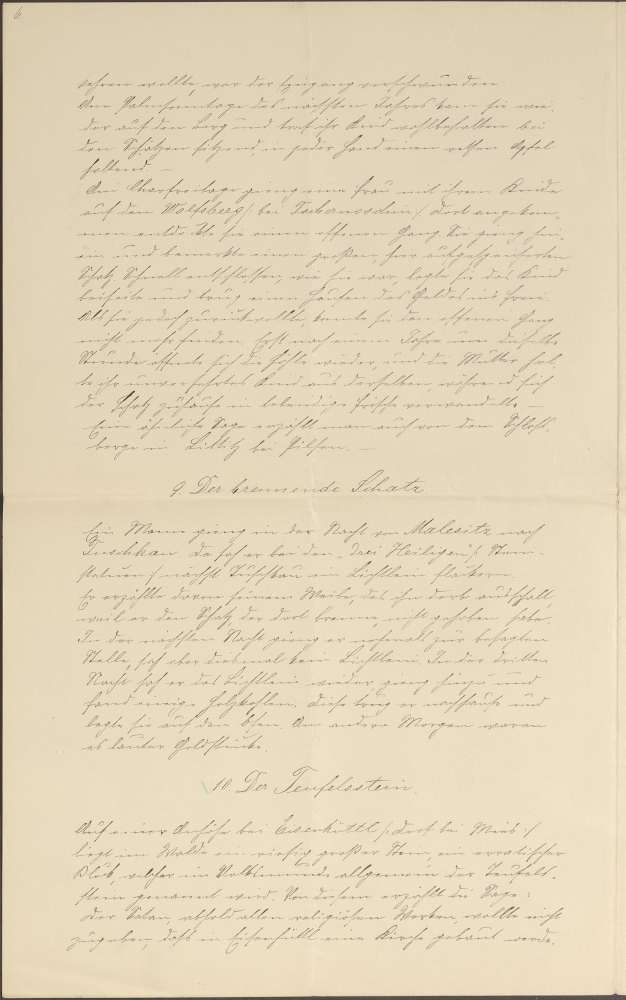 6
kehren wollte, war der Eingang verschwunden.
Am Palmsonntage des nächsten Jahres kam sie wie-
der auf den Berg und traf ihr Kind wohlbehalten bei
den Schätzen sitzend, in jeder Hand einen rothen Apfel
haltend. —
Am Charfreitage gieng eine Frau mit ihrem Kinde
auf den Wolfsberg /: bei Tschernoschin :/ Dort angekom-
men entdeckte sie einen offenen Gang. Sie gieng hin-
ein und bemerkte einen großen, hier aufgespeicherten
Schatz. Schnell entschlossen, wie sie war, legte sie das Kind
beiseite und trug einen Haufen des Geldes ins Freie.
Als sie jedoch zurück wollte, konnte sie den offenen Gang
nicht mehr finden. Erst nach einem Jahre um dieselbe
Stunde öffnete sich die Höhle wieder, und die Mutter hol-
te ihr unversehrtes Kind aus derselben, während sich
der Schatz zuhause in lebendige Frösche verwandelte. —
Eine ähnliche Sage erzählt man auch von dem Schloß-
berge in Littitz bei Pilsen. —
9. Der brennende Schatz
Ein Mann gieng in der Nacht von Malesitz nach
Tuschkau. Da sah er bei den „drei Heiligen“ /: Stein-
statuen :/ nächst Tuschkau ein Lichtlein flackern.
Er erzählte davon seinem Weibe, das ihn derb ausschalt,
weil er den Schatz, der dort brenne, nicht gehoben habe.
In der nächsten Nacht gieng er nochmals zur besagten
Stelle, sah aber diesmal kein Lichtlein. In der dritten
Nacht sah er das Lichtlein wieder, gieng hinzu und
fand einige Holzkohlen. Diese trug er nachhause und
legte sie auf den Ofen. Am andern Morgen waren
es lauter Goldstücke.
10. Der Teufelsstein.
Auf einer Anhöhe bei Eisenhüttl /: Dorf bei Mies :/
liegt im Walde ein riesig großer Stein, ein erratischer
Block, welcher im Volksmunde allgemein der Teufels-
stein genannt wird. Von diesem erzählt die Sage:
Der Satan, abhold allen religiösen Werken, wollte nicht
zugeben, daß in Eisenhüttl eine Kirche gebaut werde.